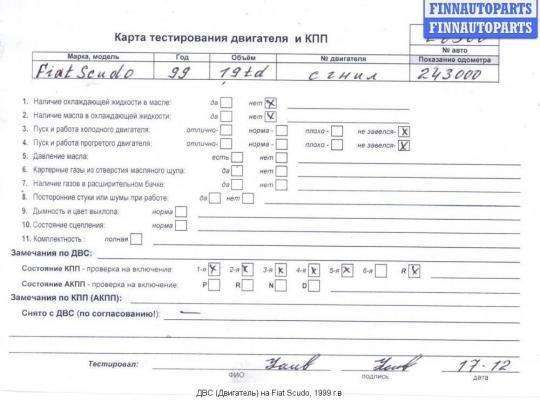 FINNAUTOPARTS
FINNAUTOPARTS
Карта тестирования двигателя и КПП
№ авто
Марка, модель Год Объём № двигателя Показание одометра
Fiat Scudo 99 19td сгнил 243000
1. Наличие охлаждающей жидкости в масле: да нет x
2. Наличие масла в охлаждающей жидкости: да нет x
3. Пуск и работа холодного двигателя: отлично- норма - плохо - не завелся- x
4. Пуск и работа прогретого двигателя: отлично- норма - плохо - не завелся- x
5. Давление масла: есть нет
6. Картерные газы из отверстия масляного щупа: да нет
7. Наличие газов в расширительном бачке: да нет
8. Посторонние стуки или шумы при работе: да нет
9. Дымность и цвет выхлопа: норма
10. Состояние сцепления: норма
11. Комплектность : полная
Замечания по ДВС:
Состояние КПП - проверка на включение: 1-я x 2-я x 3-я x 4-я x 5-я x 6-я R x
Состояние АКПП - проверка на включение: P R N D
Замечания по КПП (АКПП):
Снято с ДВС (по согласованию!): —
Тестировал: 17-12
ФИО подпись дата
ДВС (Двигатель) на Fiat Scudo, 1999 г.в.